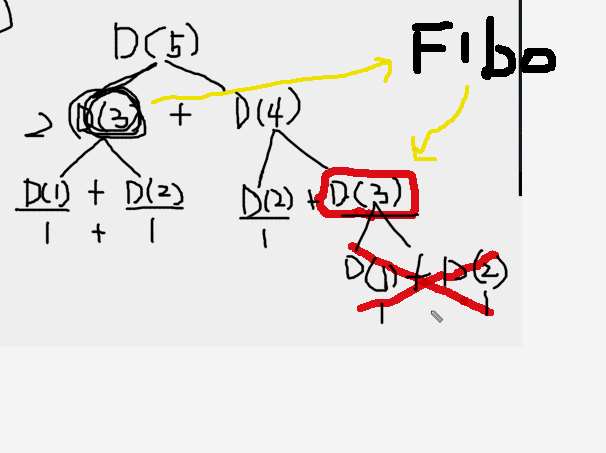 D(5)
Fibo
2 D(3) + D(4)
D(1) + D(2) D(2) + D(3)
1 + 1 1
D(1) + D(2)
1 1